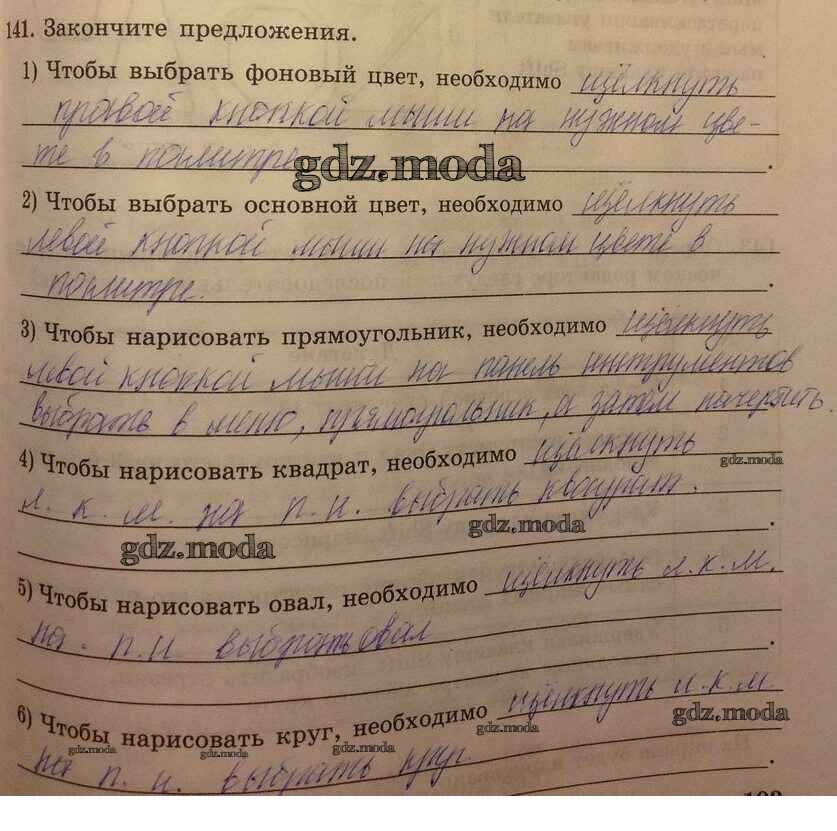 141. Закончите предложения.
1) Чтобы выбрать фоновый цвет, необходимо щёлкнуть
правой кнопкой мыши на нужном цве-
те в палитре
gdz.moda
2) Чтобы выбрать основной цвет, необходимо щёлкнуть
левой кнопкой мыши на нужном цвете в
палитре.
3) Чтобы нарисовать прямоугольник, необходимо щёлкнуть
левой кнопкой мыши на панель инструментов
выбрать в меню, прямоугольник, а затем начертить.
4) Чтобы нарисовать квадрат, необходимо щёлкнуть
gdz.moda
л. к. м. на п. и. выбрать квадрат.
gdz.moda
gdz.moda
5) Чтобы нарисовать овал, необходимо щёлкнуть л.к.м.
на. п.и выбрать овал
6) Чтобы нарисовать круг, необходимо щёлкнуть л.к.м.
gdz.moda
gdz.moda
gdz.moda
gdz.moda
на п. и. выбрать круг.
gdz.moda